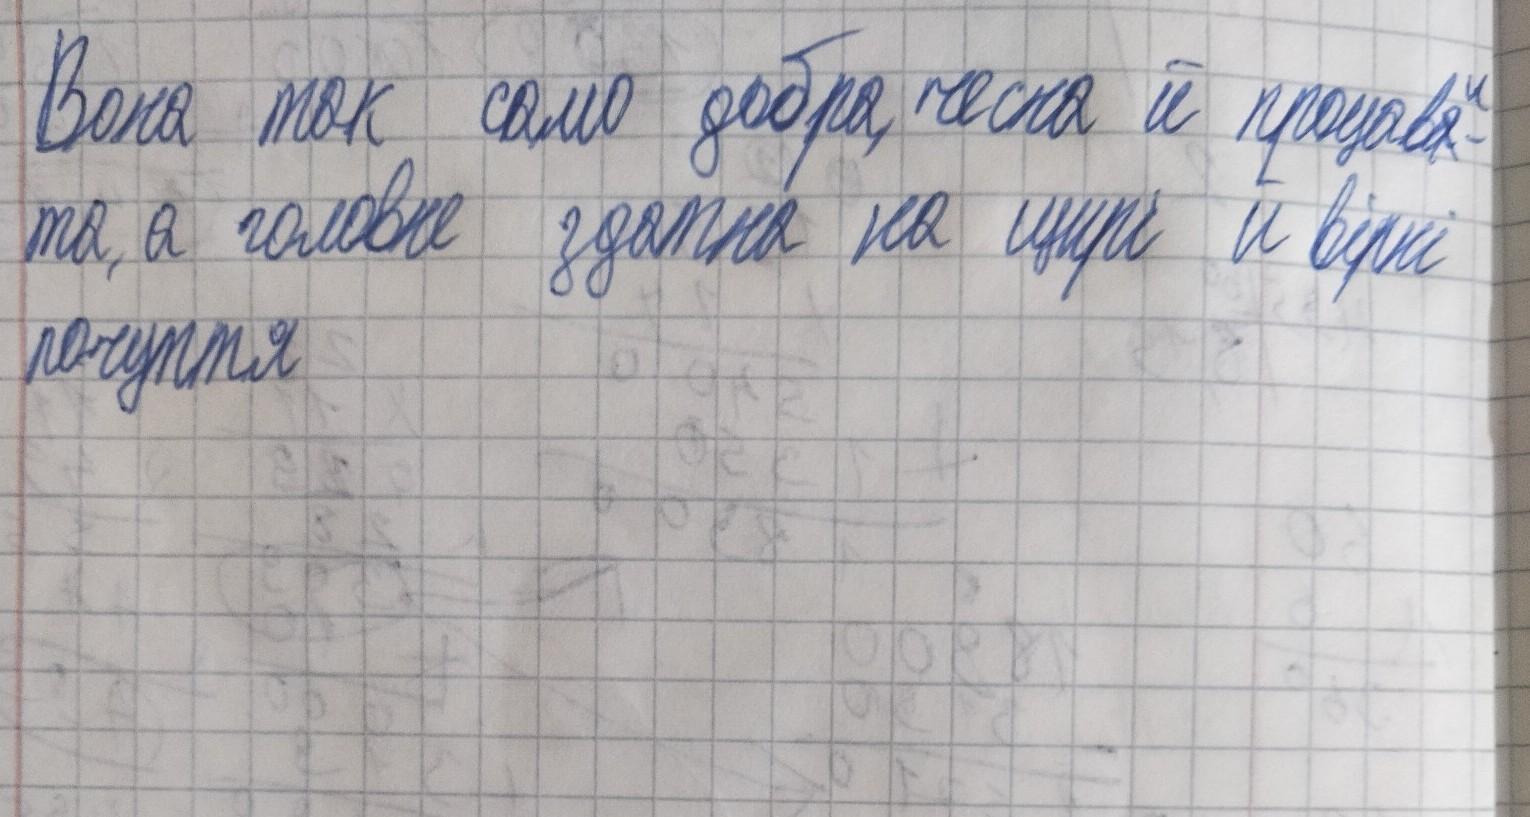 Вона так само добра, чесна й працьови-
та, а головне здатна на щирі й вірні
почуття